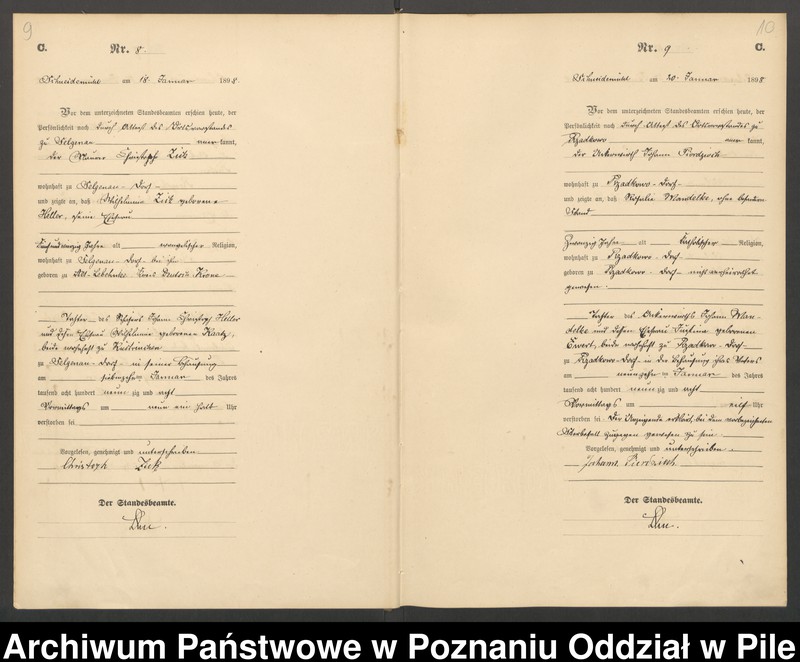 9
C.
Nr. 8.
Schneidemühl am 18. Januar 1898.
Vor dem unterzeichneten Standesbeamten erschien heute, der
Persönlichkeit nach durch Attest des Ortsvorstandes
zu Selgenau kannt,
der Maurer Christoph Zietz
wohnhaft zu Selgenau-Dorf-
und zeigte an, daß Wilhelmine Zietz geborene
Heller, seine Ehefrau
alt evangelischer Religion,
wohnhaft zu Selgenau-Dorf bei ihm
geboren zu Alt-Lobitz Kreis Deutsch Krone
Tochter des Johann Christoph Heller
und dessen Ehefrau Wilhelmine geborenen
beide wohnhaft zu
zu Selgenau-Dorf- in seiner Behausung
am siebzehnten Januar des Jahres
tausend acht hundert neunzig und acht
Vormittags um neun ein halb Uhr
verstorben sei
Vorgelesen, genehmigt und unterschrieben
Christoph Zietz
Der Standesbeamte.
10
Nr. 9
C.
Schneidemühl am 20. Januar 1898
Vor dem unterzeichneten Standesbeamten erschien heute, der
Persönlichkeit nach durch Attest des Ortsvorstandes zu
Rzadkowo kannt,
der Ackerwirth Johann
wohnhaft zu Rzadkowo-Dorf-
und zeigte an, daß Rosalie Mandelke, ohne besonderen
Stand
Zwanzig Jahre alt katholischer Religion,
wohnhaft zu Rzadkowo-Dorf-
geboren zu Rzadkowo-Dorf- nicht verheirathet
gewesen.
Tochter des Ackerwirths Johann Man-
delke und dessen Ehefrau Justine geborenen
Ewert, beide wohnhaft zu Rzadkowo-Dorf-
zu Rzadkowo-Dorf- in der Behausung ihres Vaters
am neunzehnten Januar des Jahres
tausend acht hundert neunzig und acht
Vormittags um elf Uhr
verstorben sei. Der Anzeigende erklärt, bei dem vorbezeichneten
Sterbefall zugegen gewesen zu sein.
Vorgelesen, genehmigt und unterschrieben.
Johann
Der Standesbeamte.
Archiwum Państwowe w Poznaniu Oddział w Pile